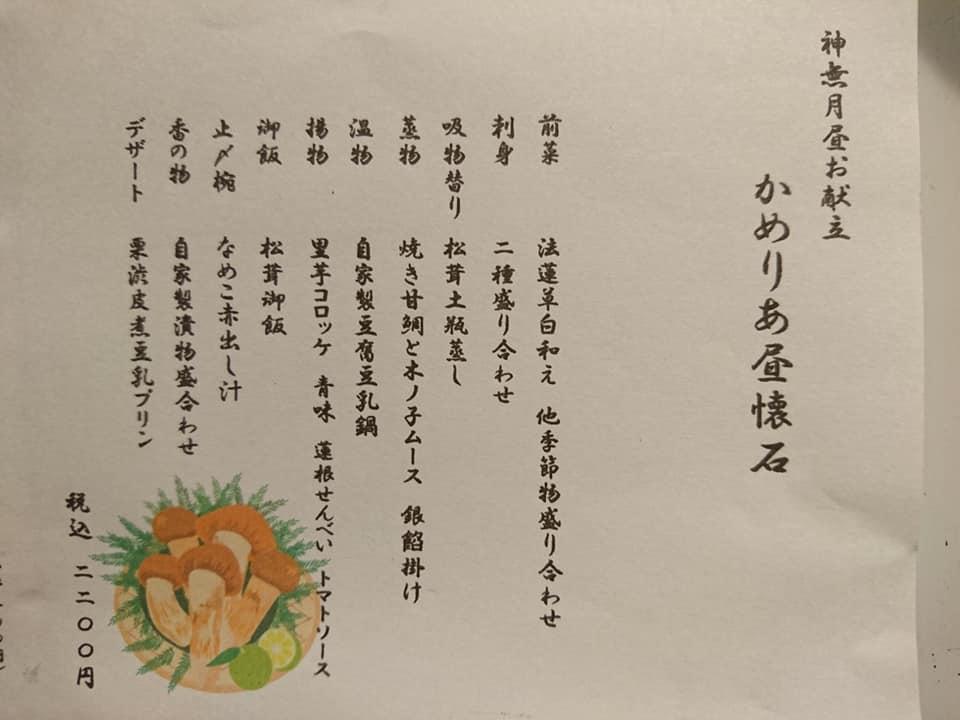 神無月昼お献立
かめりあ昼懐石
前菜 法蓮草白和え 他季節物盛り合わせ
刺身 二種盛り合わせ
吸物替り 松茸土瓶蒸し
蒸物 焼き甘鯛と木ノ子ムース 銀餡掛け
温物 自家製豆腐豆乳鍋
揚物 里芋コロッケ 青味 蓮根せんべい トマトソース
御飯 松茸御飯
止〆椀 なめこ赤出し汁
香の物 自家製漬物盛合わせ
デザート 栗渋皮煮豆乳プリン
税込 二二〇〇円